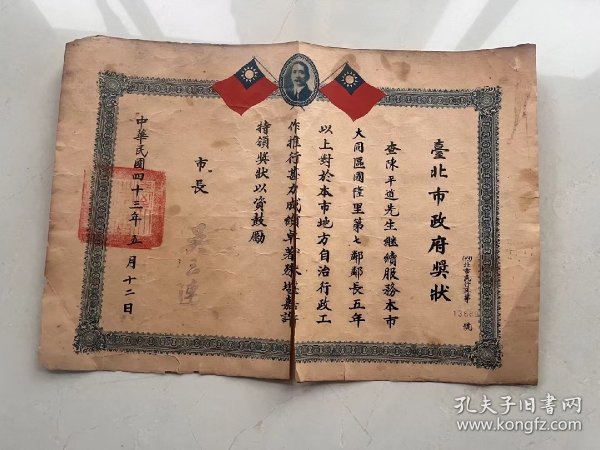 臺北市政府獎狀
查陳平道先生繼續服務本市
大同區國隆里第七鄰鄰長五年
以上對於本市地方自治行政工
作推行甚力成績卓著殊堪嘉許
特頒獎狀以資鼓勵
市長
中華民國四十三年五月十二日
孔夫子旧书网
www.kongfz.com